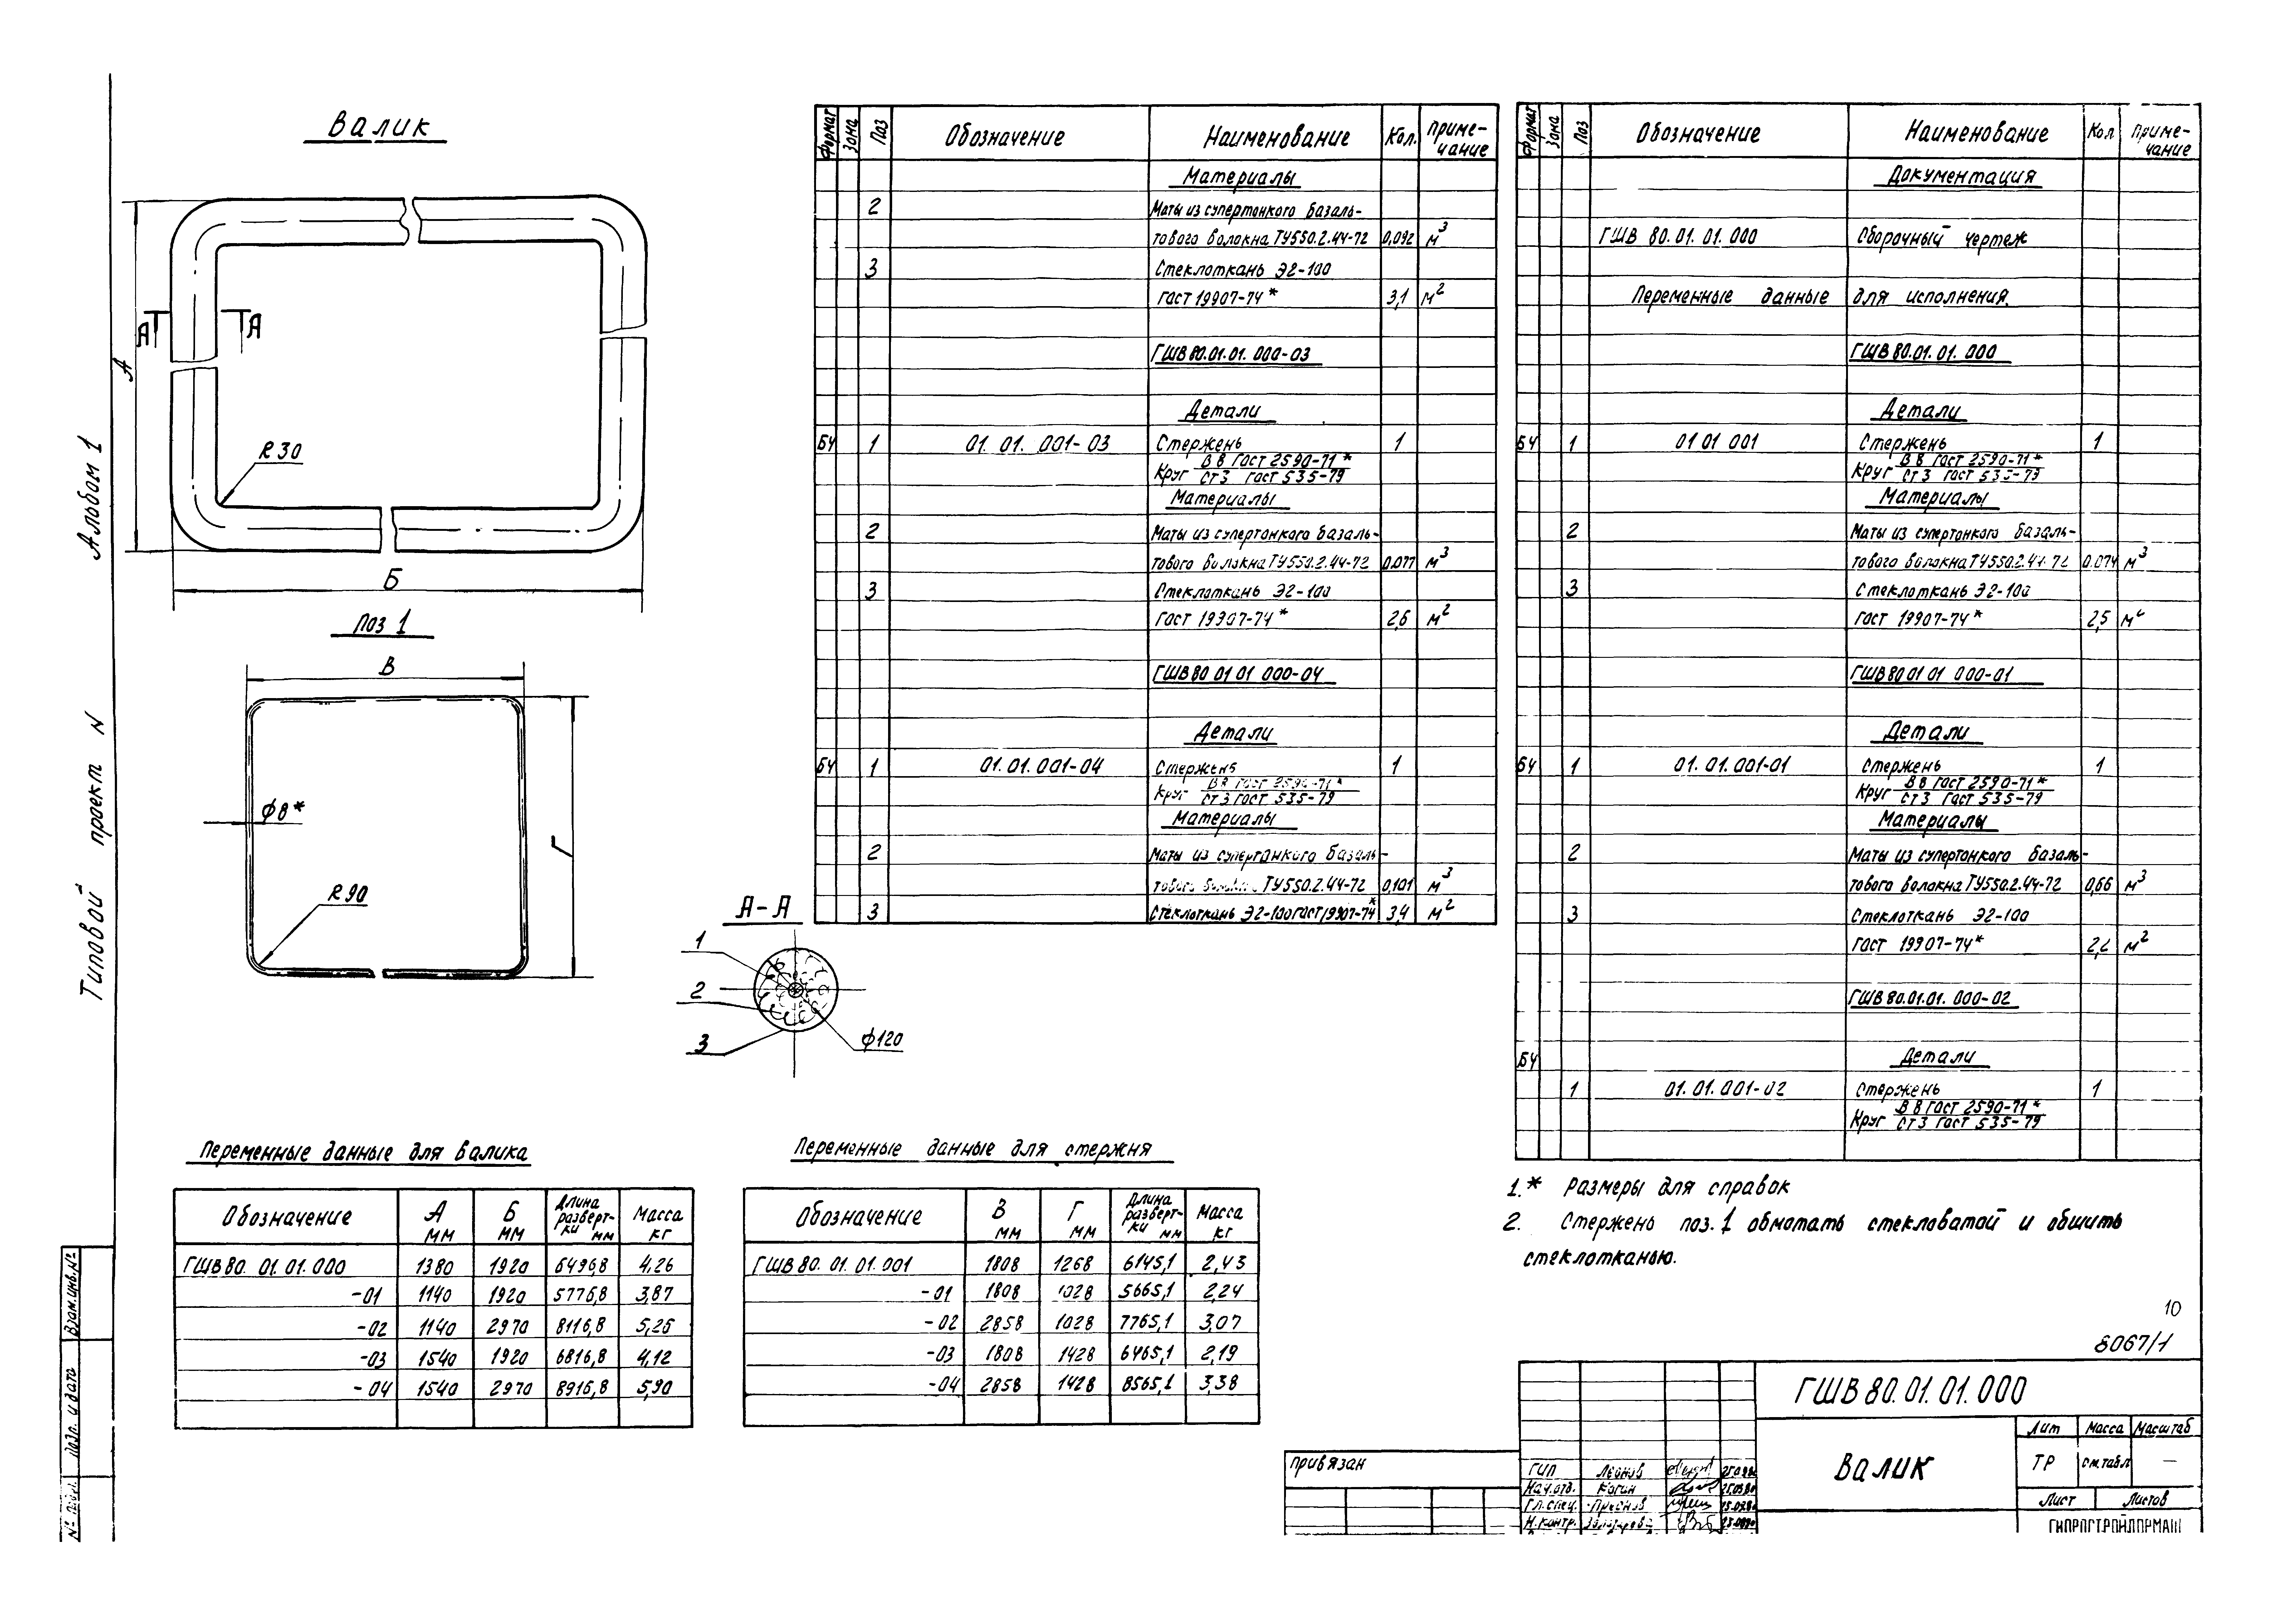 Альбом 1
Типовой проект N
Взам.инв.№
Подп. и дата
Валик
А
А
А
R 30
Б
Поз 1
В
Ф8*
Г
R 90
А-А
1
2
3
Ф120
Формат Зона Поз Обозначение Наименование Кол. Приме-
чание
Материалы
2 Маты из супертонкого базаль-
тового волокна ТУ550.2.44-72 0,092 м3
3 Стеклоткань Э2-100
ГОСТ 19907-74* 3,1 м2
ГШВ 80.01.01.000-03
Детали
БЧ 1 01.01.001-03 Стержень 1
Круг В 8 ГОСТ 2590-71*
Ст3 ГОСТ 535-79
Материалы
2 Маты из супертонкого базаль-
тового волокна ТУ550.2.44-72 0.077 м3
3 Стеклоткань Э2-100
ГОСТ 19907-74* 2,6 м2
ГШВ 80 01 01 000-04
Детали
БЧ 1 01.01.001-04 Стержень 1
Круг В 8 ГОСТ 2590-71*
Ст3 ГОСТ 535-79
Материалы
2 Маты из супертонкого базаль-
тового волокна ТУ550.2.44-72 0,101 м3
3 Стеклоткань Э2-100 ГОСТ 19907-74* 3,4 м2
Формат Зона Поз Обозначение Наименование Кол Приме-
чание
Документация
ГШВ 80.01.01.000 Сборочный чертеж
Переменные данные для исполнения.
ГШВ 80.01.01.000
Детали
БЧ 1 01 01 001 Стержень 1
Круг В 8 ГОСТ 2590-71*
Ст3 ГОСТ 535-79
Материалы
2 Маты из супертонкого базаль-
тового волокна ТУ550.2.44-72 0.074 м3
3 Стеклоткань Э2-100
ГОСТ 19907-74* 2,5 м2
ГШВ 80 01 01 000-01
Детали
БЧ 1 01.01.001-01 Стержень 1
Круг В 8 ГОСТ 2590-71*
Ст3 ГОСТ 535-79
Материалы
2 Маты из супертонкого базаль-
тового волокна ТУ550.2.44-72 0,66 м3
3 Стеклоткань Э2-100
ГОСТ 19907-74* 2,2 м2
ГШВ 80.01.01.000-02
БЧ Детали
1 01.01.001-02 Стержень 1
Круг В 8 ГОСТ 2590-71*
Ст3 ГОСТ 535-79
Переменные данные для валика
Обозначение А мм Б мм Длина разверт-ки мм Масса кг
ГШВ 80.01.01.000 1380 1920 6496,8 4,26
-01 1140 1920 5776,8 3,87
-02 1140 2970 8116,8 5,26
-03 1540 1920 6816,8 4,12
-04 1540 2970 8916,8 5,90
Переменные данные для стержня
Обозначение В мм Г мм Длина разверт-ки мм Масса кг
ГШВ 80.01.01.001 1808 1268 6145,1 2,43
-01 1808 1028 5665,1 2,24
-02 2858 1028 7765,1 3,07
-03 1808 1428 6465,1 2,19
-04 2858 1428 8565,1 3,38
1.* Размеры для справок
2. Стержень поз.1 обмотать стекловатой и обшить
стеклотканью.
10
8067/1
ГШВ 80.01.01.000
Валик
Лит Масса Масштаб
ТР см.табл —
Лист Листов
ГИПРОСТРОЙДОРМАШ
Привязан
ГИП Леонов
Нач.отд. Коган
Гл.спец.
Н.контр.